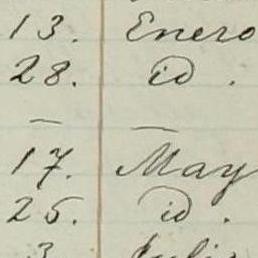 13. Enero
28. id.
— —
17. May
25. id.
3 Julio